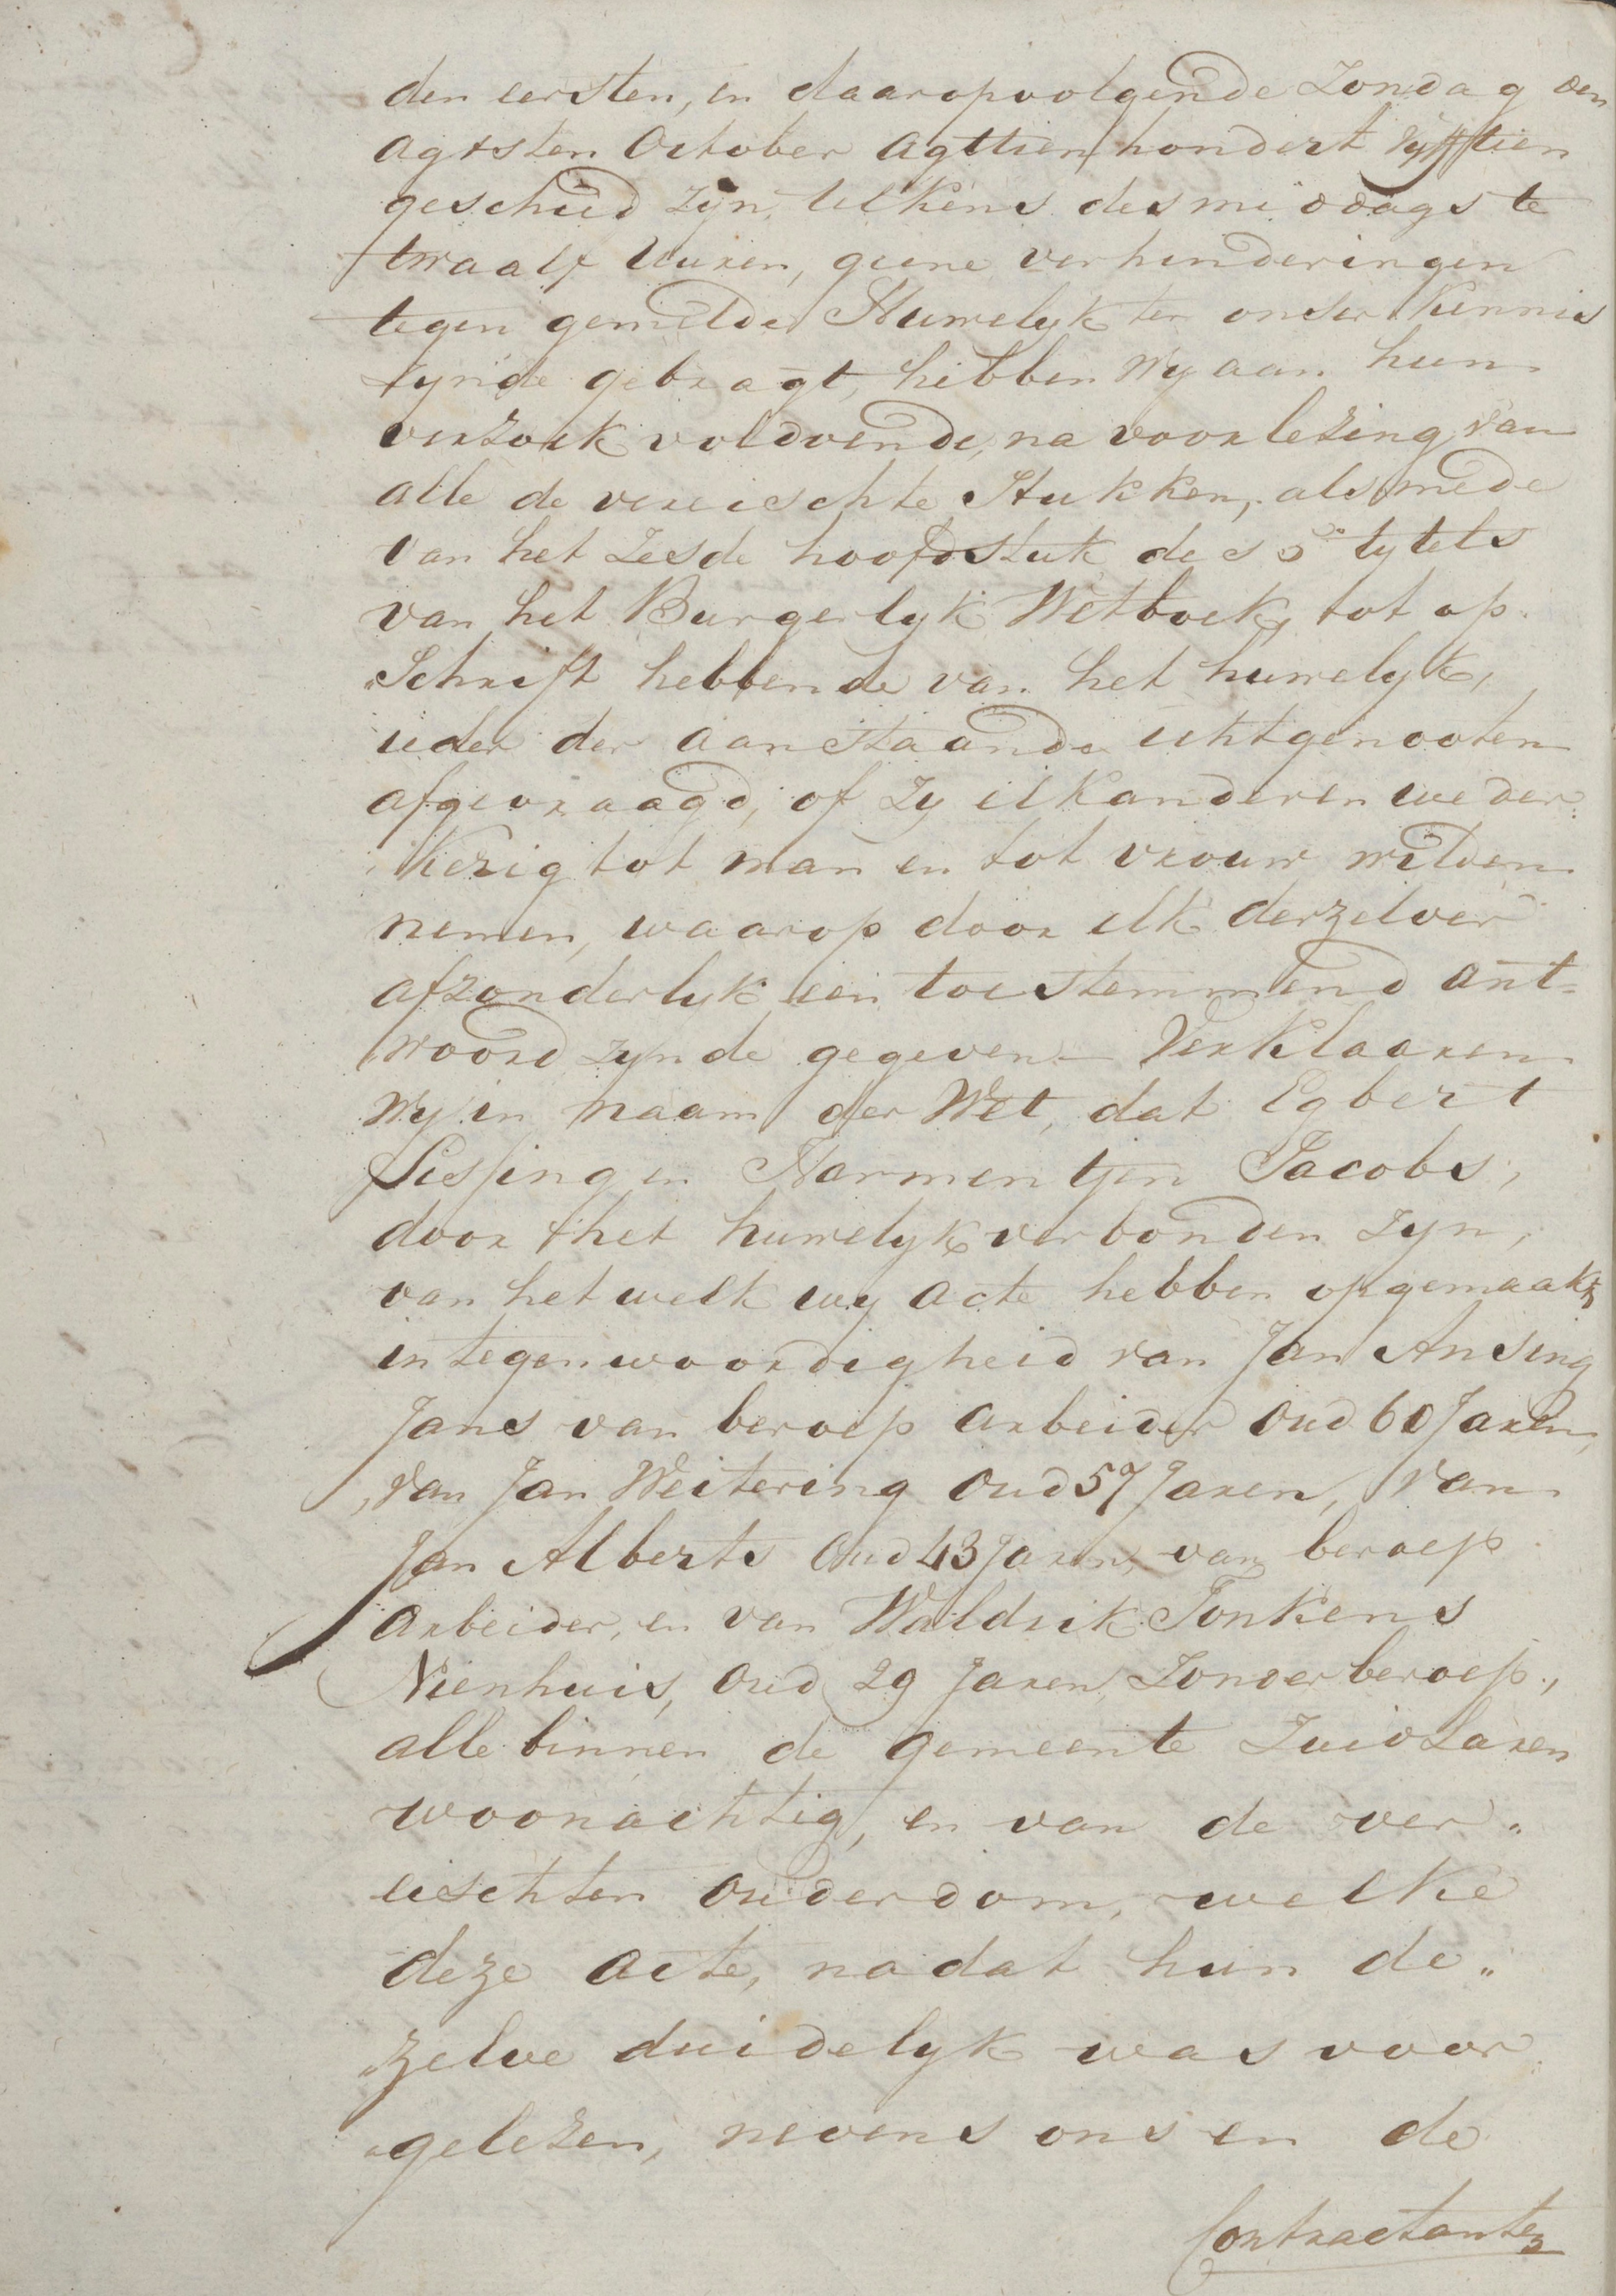 den eersten, en daaropvolgende Zondag den
agtsten October agttien hondert vyfftien
geschied zyn, telkens des middags te
twaalf Uuren, geene verhinderingen
tegen gemelde Huwelyk ter onser kennis
zynde gebragt, hebben wy aan hun
verzoek voldoende, na voorlezing van
alle de vereischte Stukken, als mede
van het Zesde hoofdstuk des 5e tytels
van het Burgerlyk Wetboek, tot op
"Schrift hebbende van het huwelyk,
ieder der aanstaande echtgenooten
afgevraagd, of Zy elkanderen weder:
kerig tot man en tot vrouw wilden
nemen, waarop door elk derzelver
afzonderlyk een toestemmend ant=
woord zynde gegeven – Verklaaren
wy in naam der Wet, dat Egbert
Sissing en Harmentjen Jacobs,
door het huwelyk verbonden zyn,
van het welk wy acte hebben opgemaakt,
in tegenwoordigheid van Jan Ansing
Jans van beroep arbeider oud 60 Jaren,
van Jan Weitering oud 57 Jaren, van
Jan Alberts oud 43 Jaren, van beroep
arbeider, en van Waldrik Tonkens
Nienhuis, oud 29 Jaren, Zonder beroep,
alle binnen de gemeente Zuidlaren
woonachtig, en van de ver„
eischten ouderdom, welke
deze acte, na dat hun de„
zelve duidelyk was voor
„gelezen, nevens ons en de
Contractanten